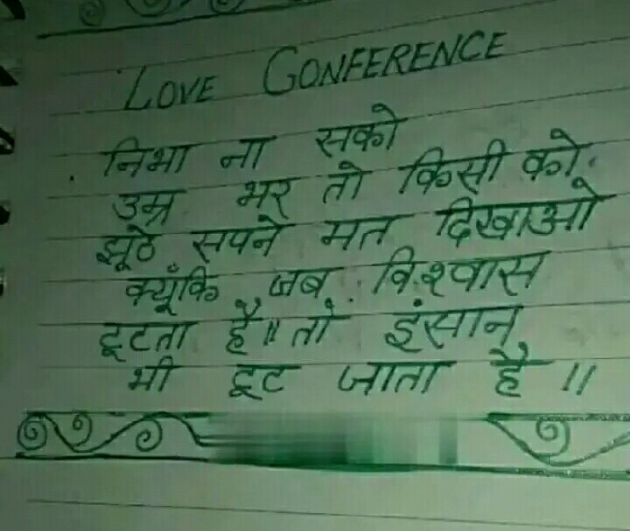 LOVE CONFERENCE
निभा ना सको
उम्र भर तो किसी को
झूठे सपने मत दिखाओ
क्यूँकि जब विश्वास
टूटता है॥ तो इंसान
भी टूट जाता है॥